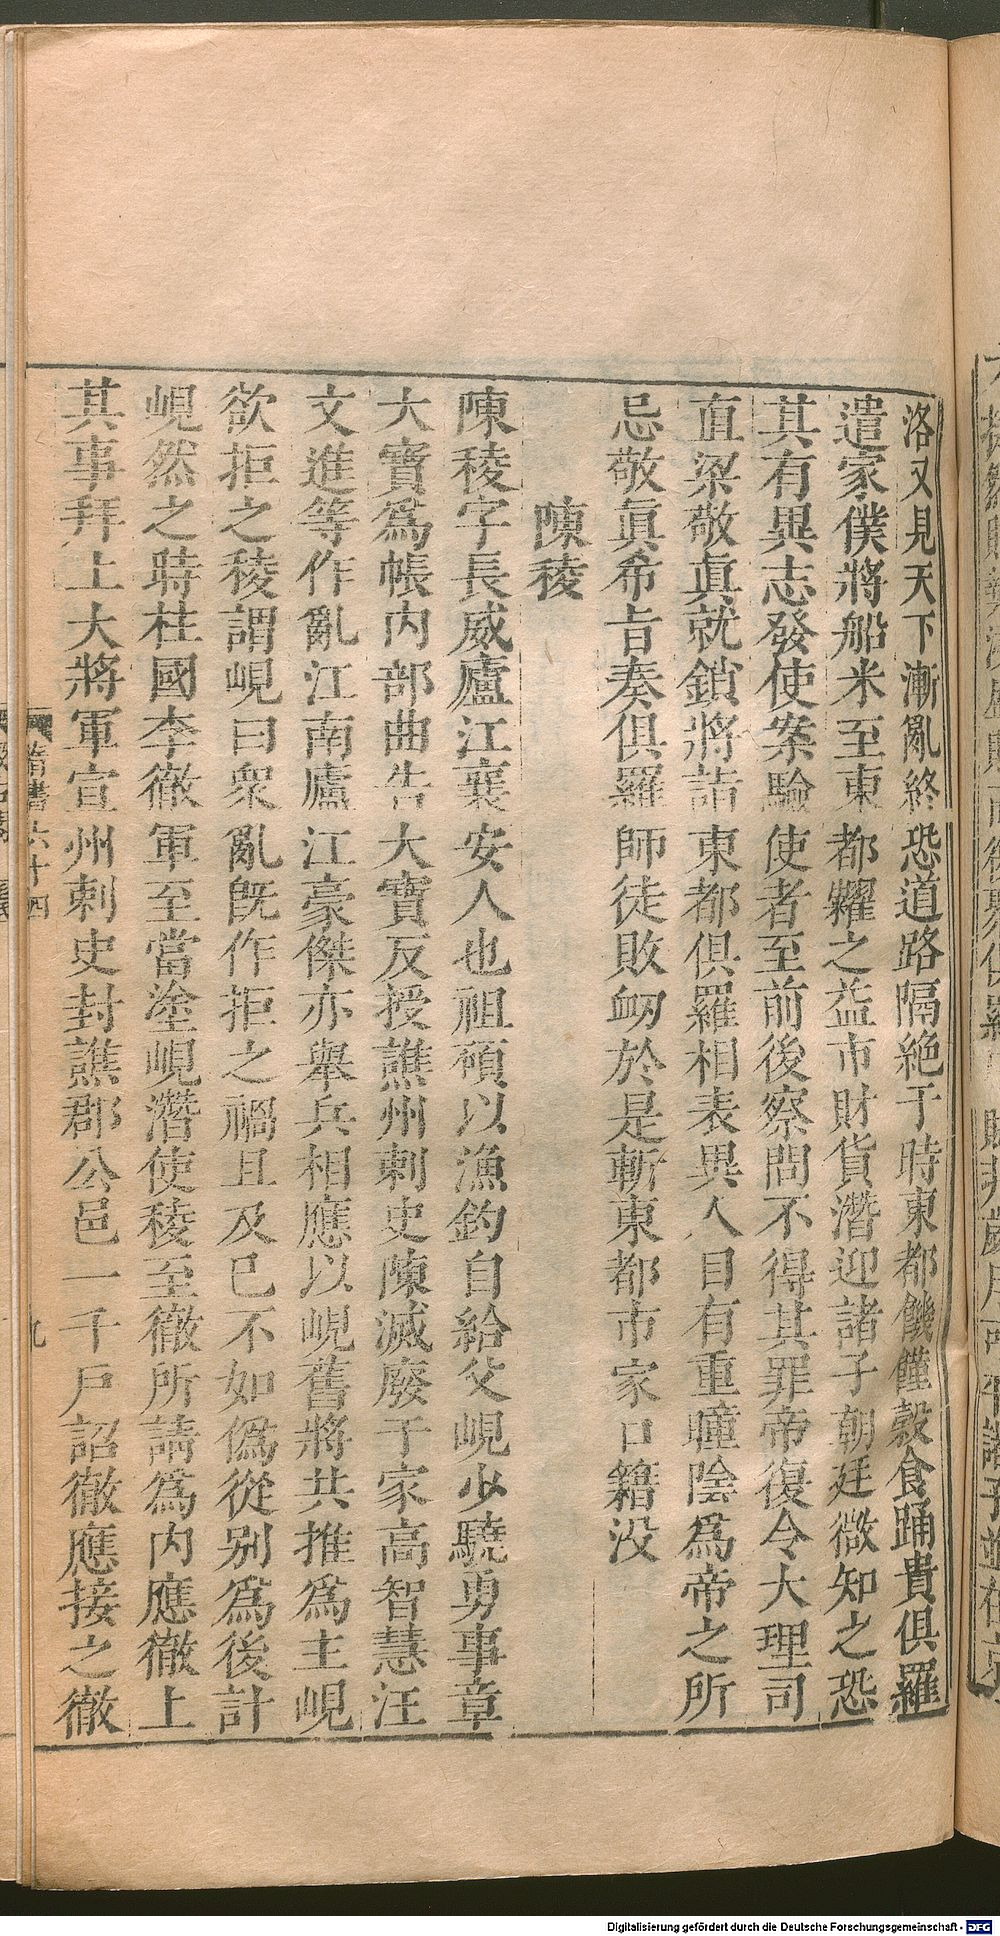 洛又見天下漸亂終恐道路隔絶于時東都饑僅穀食踊貴俱羅
遣家僕將船米至東都糶之益市財貨潛迎諸子朝廷微知之恐
其有異志發使案驗使者至前後察問不得其罪帝復令大理司
直梁敬眞就鎖將詣東都俱羅相表異人目有重瞳陰爲帝之所
忌敬眞希旨奏俱羅師徒敗衂於是斬東都市家口籍没
陳稜
陳稜字長威廬江襄安人也祖碩以漁釣自給父峴少驍勇事章
大寶爲帳内部曲告大寶反授譙州刺史陳滅廢于家高智慧汪
文進等作亂江南廬江豪傑亦舉兵相應以峴舊將共推爲主峴
欲拒之稜謂峴曰衆亂旣作拒之禍且及已不如僞從别爲後計
峴然之時柱國李徹軍至當塗峴潛使稜至徹所請爲内應徹上
其事拜上大將軍宣州刺史封譙郡公邑一千戸詔徹應接之徹
隋書六十四
九
Digitalisierung gefördert durch die Deutsche Forschungsgemeinschaft - DFG